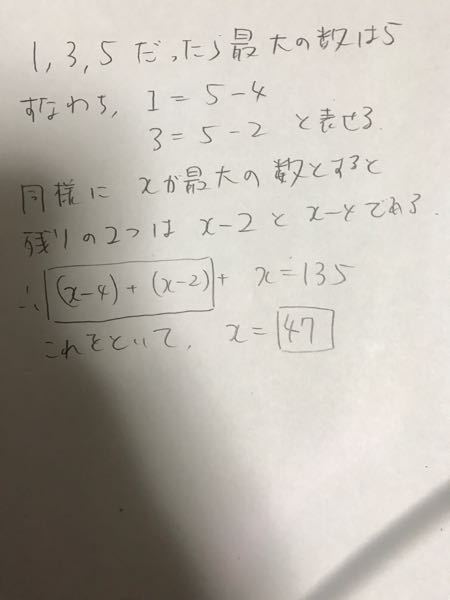 1, 3, 5 だったら最大の数は5
すなわち, 1 = 5 - 4
3 = 5 - 2 と表せる.
同様に xが最大の数とすると
残りの2つは x-2 と x-4である.
∴ (x-4) + (x-2) + x = 135
これをといて, x = 47